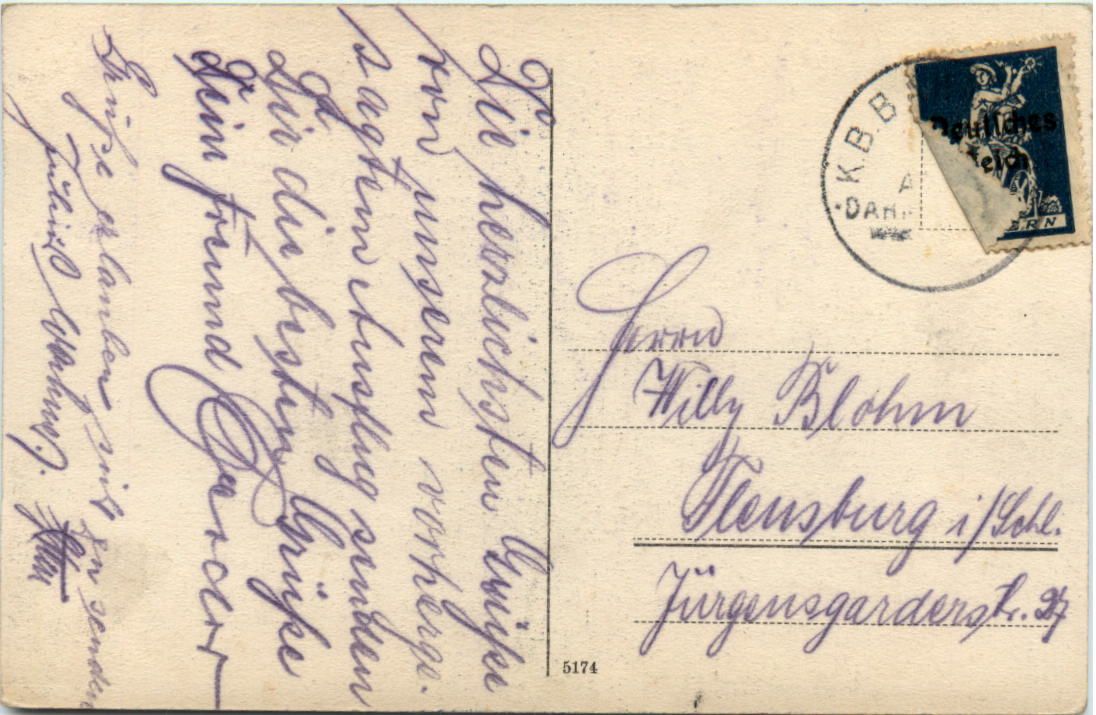 Die herzlichsten Grüße
von unserem vorherge-
sagten Ausflug senden
Dir die besten Grüße
Dein Freund
Grüße erlauben sich zu senden
K.B.B
DAH
Deutsches
Reich
ERN
Herrn
Willy Blohm
Flensburg i/Schl.
Jürgensgarderstr. 27
5174